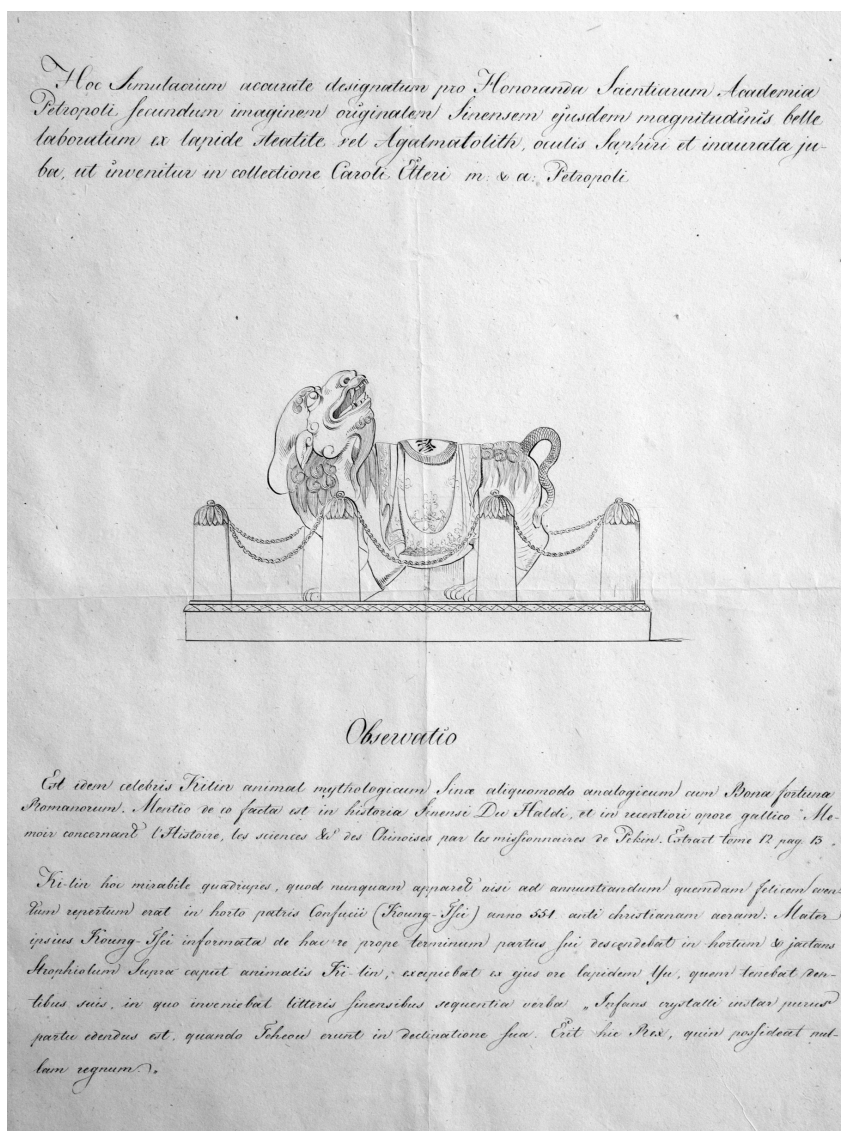 Hoc Simulacrum accurate designatum pro Honoranda Scientiarum Academia
Petropoli secundum imaginem originalem Sinensem ejusdem magnitudinis belle
laboratum ex lapide steatite vel Agalmatolith, oculis Saphiri et inaurata ju-
ba, ut invenitur in collectione Caroli Etteri m: & a: Petropoli
Observatio
Est idem celebris Kilin animal mythologicum Sinæ aliquomodo analogicum cum Bona fortuna
Romanorum. Mentio de eo facta est in historia Sinensi Du Haldi, et in recentiori opere gallico "Me-
moir concernant l'Histoire, les sciences &c des Chinoises par les missionnaires de Pekin. Extrait tome 12 pag 15.
Ki-lin hoc mirabile quadrupes, quod nunquam apparet nisi ad annuntiandum quemdam felicem even-
tum repertum erat in horto patris Confucii (Koung-Tsei) anno 551 anti christianam aeram: Mater
ipsius Koung-Tsei informata de hac re prope terminum partus sui descendebat in hortum & jactans
Strophiolum Supra caput animalis Ki-lin, excipiebat ex ejus ore lapidem Yu, quem tenebat den-
tibus suis, in quo inveniebat litteris sinensibus sequentia verba „Infans crystalli instar purus
partu edendus est, quando Tcheou erunt in declinatione sua. Erit hic Rex, quin possideat nul-
lam regnum".